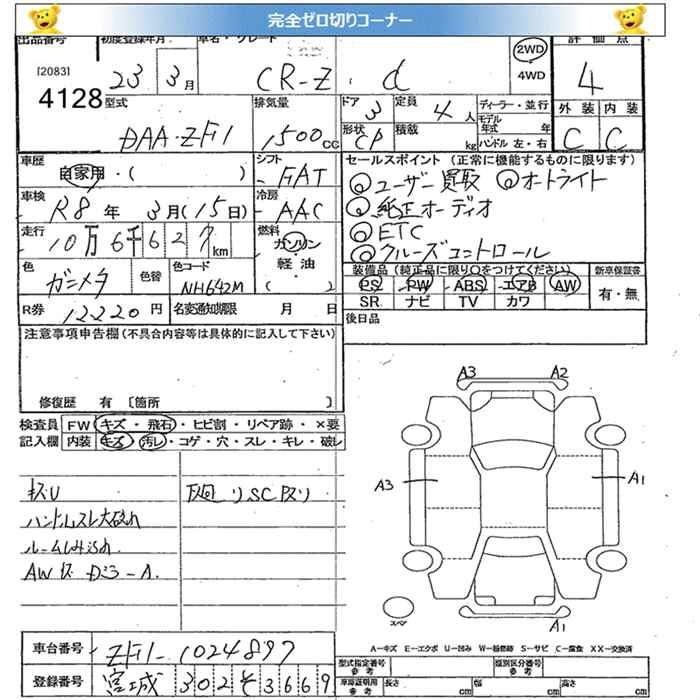 完全ゼロ切りコーナー
出品番号 初度登録年月 車名・グレード 評価点
[2083] 23 3月 CR-Z . α 2WD 4WD 4
4128 型式 排気量 ドア 3 定員 4人 ディーラー・並行 外装 内装
DAA-ZF1 1500cc 形状 CP 積載 kg モデル年式 年 ハンドル 左・右 C C
車歴 自家用・( ) シフト FAT セールスポイント (正常に機能するものに限ります)
◎ユーザー買取 ◎オートライト
車検 R8年 3月(15日) 冷房 AAC ◎純正オーディオ
走行 10万6千627km 燃料 ガソリン・軽油・( ) ◎ETC
◎クルーズコントロール
色 ガンメタ 色替 色コード NH642M 装備品 (純正品に限り○をつけてください) 新車保証書
PS PW ABS エアB AW 有・無
SR ナビ TV カワ
R券 12220円 名変通知期限 月 日 後日品
注意事項申告欄 (不具合内容等は具体的に記入して下さい)
修復歴 有 〔箇所 〕
検査員 FW キズ・飛石・ヒビ割・リペア跡・×要
記入欄 内装 キズ・汚レ・コゲ・穴・スレ・キレ・破レ
キズU 下廻リSCサビ
ハンドルスレ
AWキズ
A3 A2
A3 A1
スペア A1
車台番号 ZF1-1024897
A-キズ E-エクボ U-凹み W-補修跡 S-サビ C-腐食 XX-交換済
登録番号 宮城302そ3669
型式指定番号 参考 類別区分番号 参考
車庫証明用 参考 長さ cm 幅 cm 高さ cm